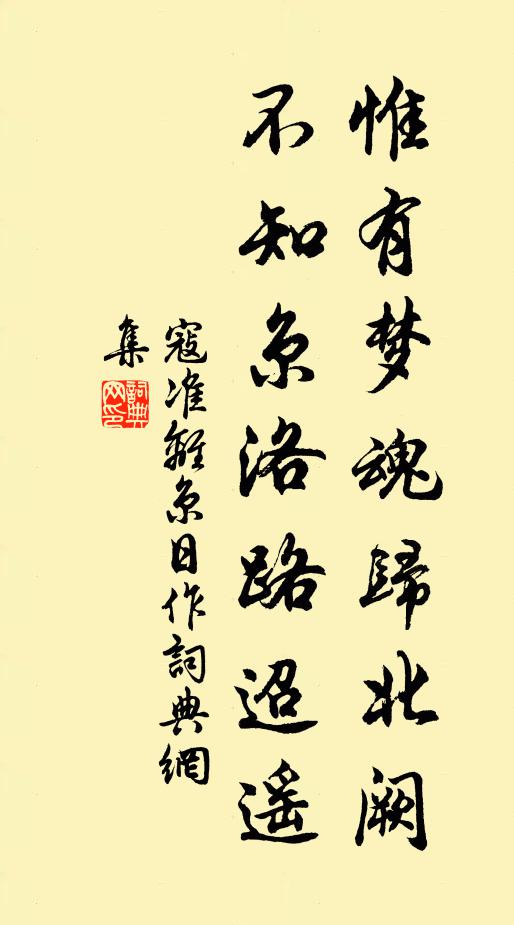 惟有梦魂歸北阙
不知京洛路迢遥
寇准離京日作詞典網
集
詞典
网印